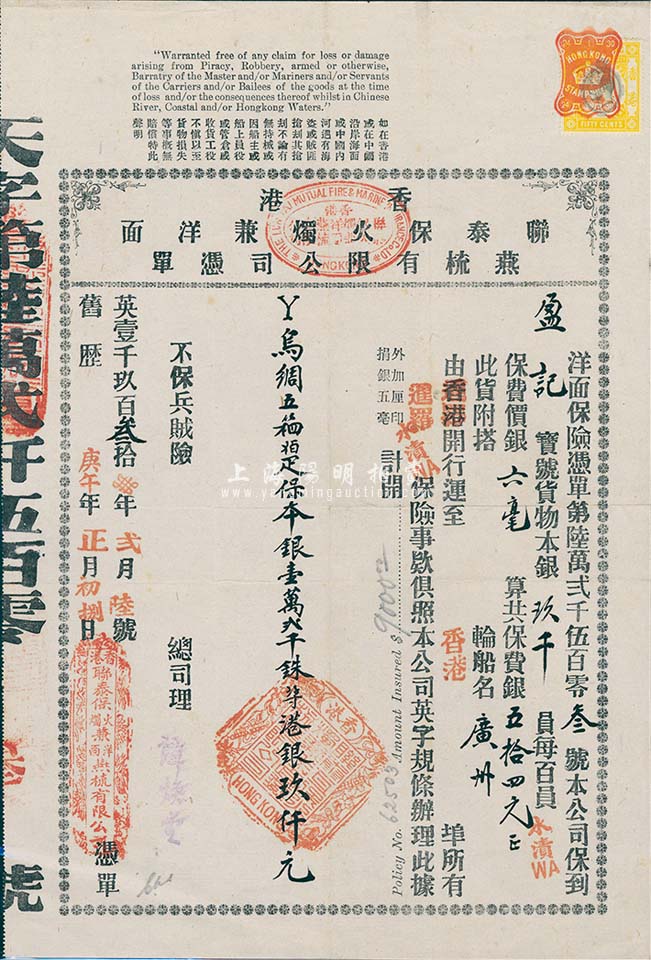 "Warranted free of any claim for loss or damage
arising from Piracy, Robbery, armed or otherwise,
Barratry of the Master and/or Mariners and/or Servants
of the Carriers and/or Bailees of the goods at the time
of loss and/or the consequences thereof whilst in Chinese
River, Coastal and/or Hongkong Waters."
HONG KONG
STAMP DUTY
FIFTY CENTS
如在香港
或在中國
沿岸海面
或中國內
河遇有海
盜或賊匪
搶刦其搶
刦不論有
無持械或
因船主或
船上員役
或管倉或
收貨工役
不慎以至
貨物損失
等事概無
賠償特此
聲明
香港
聯泰保火燭兼洋面
燕梳有限公司憑單
洋面保險憑單第陸萬弍千伍百零叁號本公司保到
盈記寶號貨物本銀玖千員每百員
水漬WA
保費價銀六毫算共保費銀五拾四元正
此貨附搭輪船名廣州
由香港開行運至香港埠所有
暹羅水漬WA保險事欵俱照本公司英字規條辦理此據
外加厘印
捐銀五毫
計開
Policy No. 62503 Amount Insured $ 9000
不保兵賊險
總司理
英壹千玖百叁拾年弍月陸號
舊歷庚午年正月初捌日
香港聯泰保火燭兼洋面燕梳有限公司
憑單
天字第陸萬弍仟伍百零叁號
上海陽明拍賣
www.yangmingauction.com